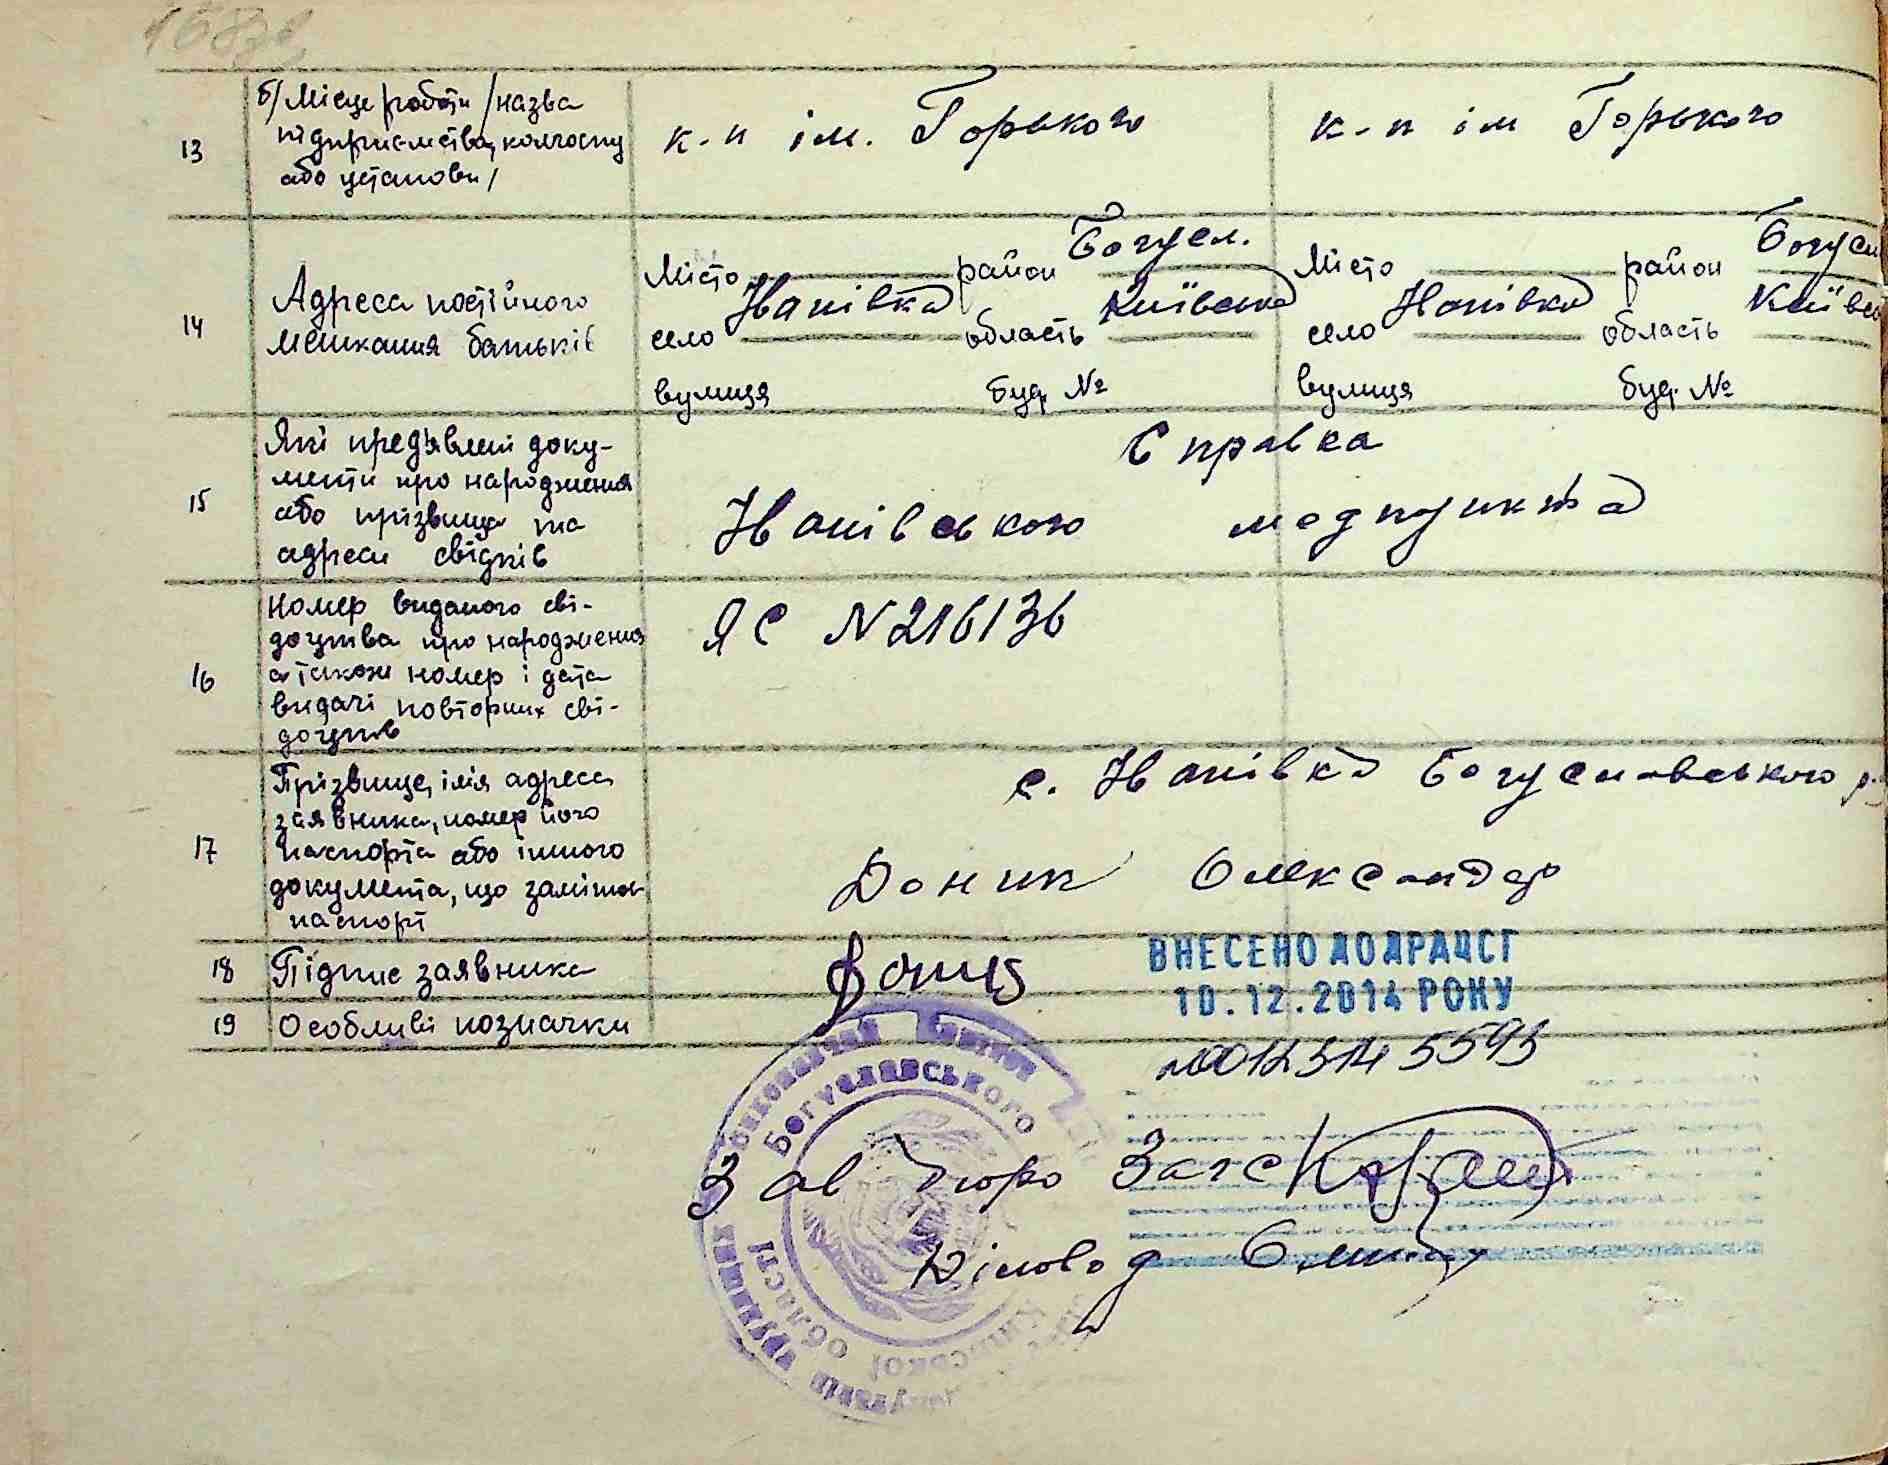 13
б/ Місце роботи /назва
підприємства, колгоспу
або установи/
к-п ім. Горького
к-п ім Горького
14
Адреса постійного
мешкання батьків
Місто район Богусл.
село Іванівка область Київська
вулиця буд. №
Місто район Богусл
село Іванівка область Київсь
вулиця буд. №
15
Які предъявлені доку-
менти про народження
або прізвища та
адреси свідків
Справка
Іванівського медпункта
16
Номер виданого сві-
доцтва про народження
а також номер і дата
видачі повторних сві-
доцтв
ЯС N 216136
17
Прізвище, імія адреса
заявника, номер його
паспорта або іншого
документа, що заміня
паспорт
с. Іванівка Богуславського р
Доник Олександр
18
Підпис заявника
19
Особливі позначки
ВНЕСЕНО ДО ДРАЦСГ
10.12.2014 РОКУ
Богуславського
Київської області
Зав бюро Загс
Діловод